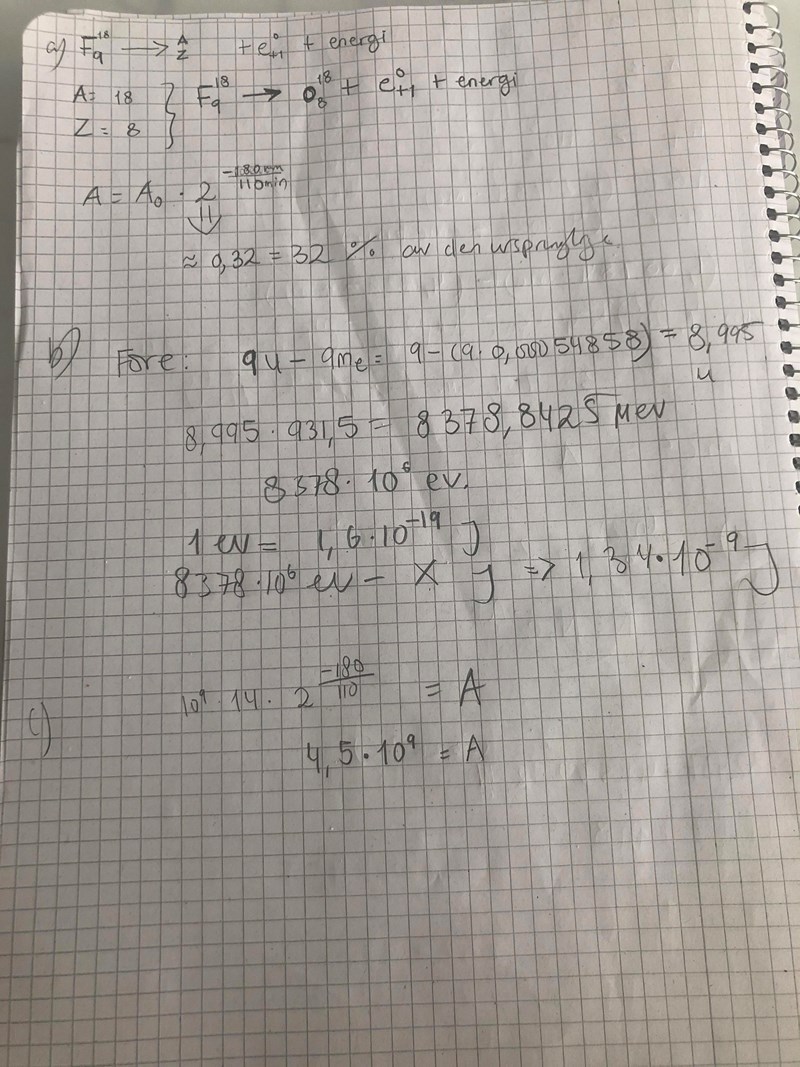 a) F₉¹⁸ → ᴬ_Z + e₊₁⁰ + energi
A = 18 } F₉¹⁸ → O₈¹⁸ + e₊₁⁰ + energi
Z = 8
A = A₀ · 2^(-180min/110min)
≈ 0,32 = 32 % av den
b) Före: 9u - 9mₑ = 9 - (9 · 0,00054858) = 8,995
u
8,995 · 931,5 = 8378,8425 Mev
8378 · 10⁶ ev.
1 ev = 1,6 · 10⁻¹⁹ J
8378 · 10⁶ ev - x J => 1,34 · 10⁻⁹ J
c) 10⁹ · 14 · 2^(-180/110) = A
4,5 · 10⁹ = A